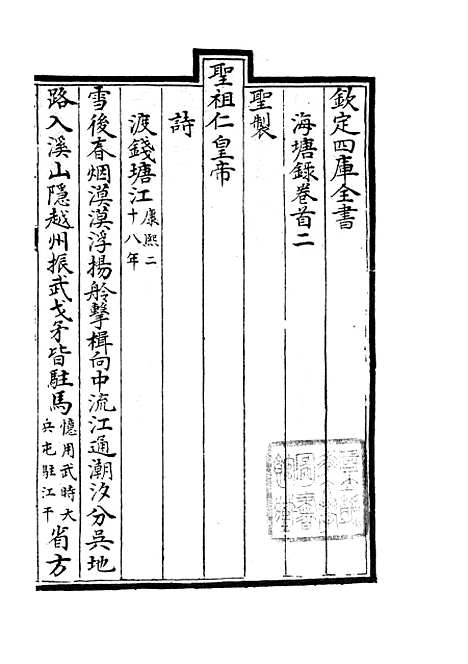 欽定四庫全書
海塘錄卷首二
聖製
聖祖仁皇帝
詩
渡錢塘江康熙二十八年
雪後春烟漠漠浮揚舲擊楫向中流江通潮汐分吳地
路入溪山隱越州振武戈矛皆駐馬憶用武時大兵屯駐江干省方